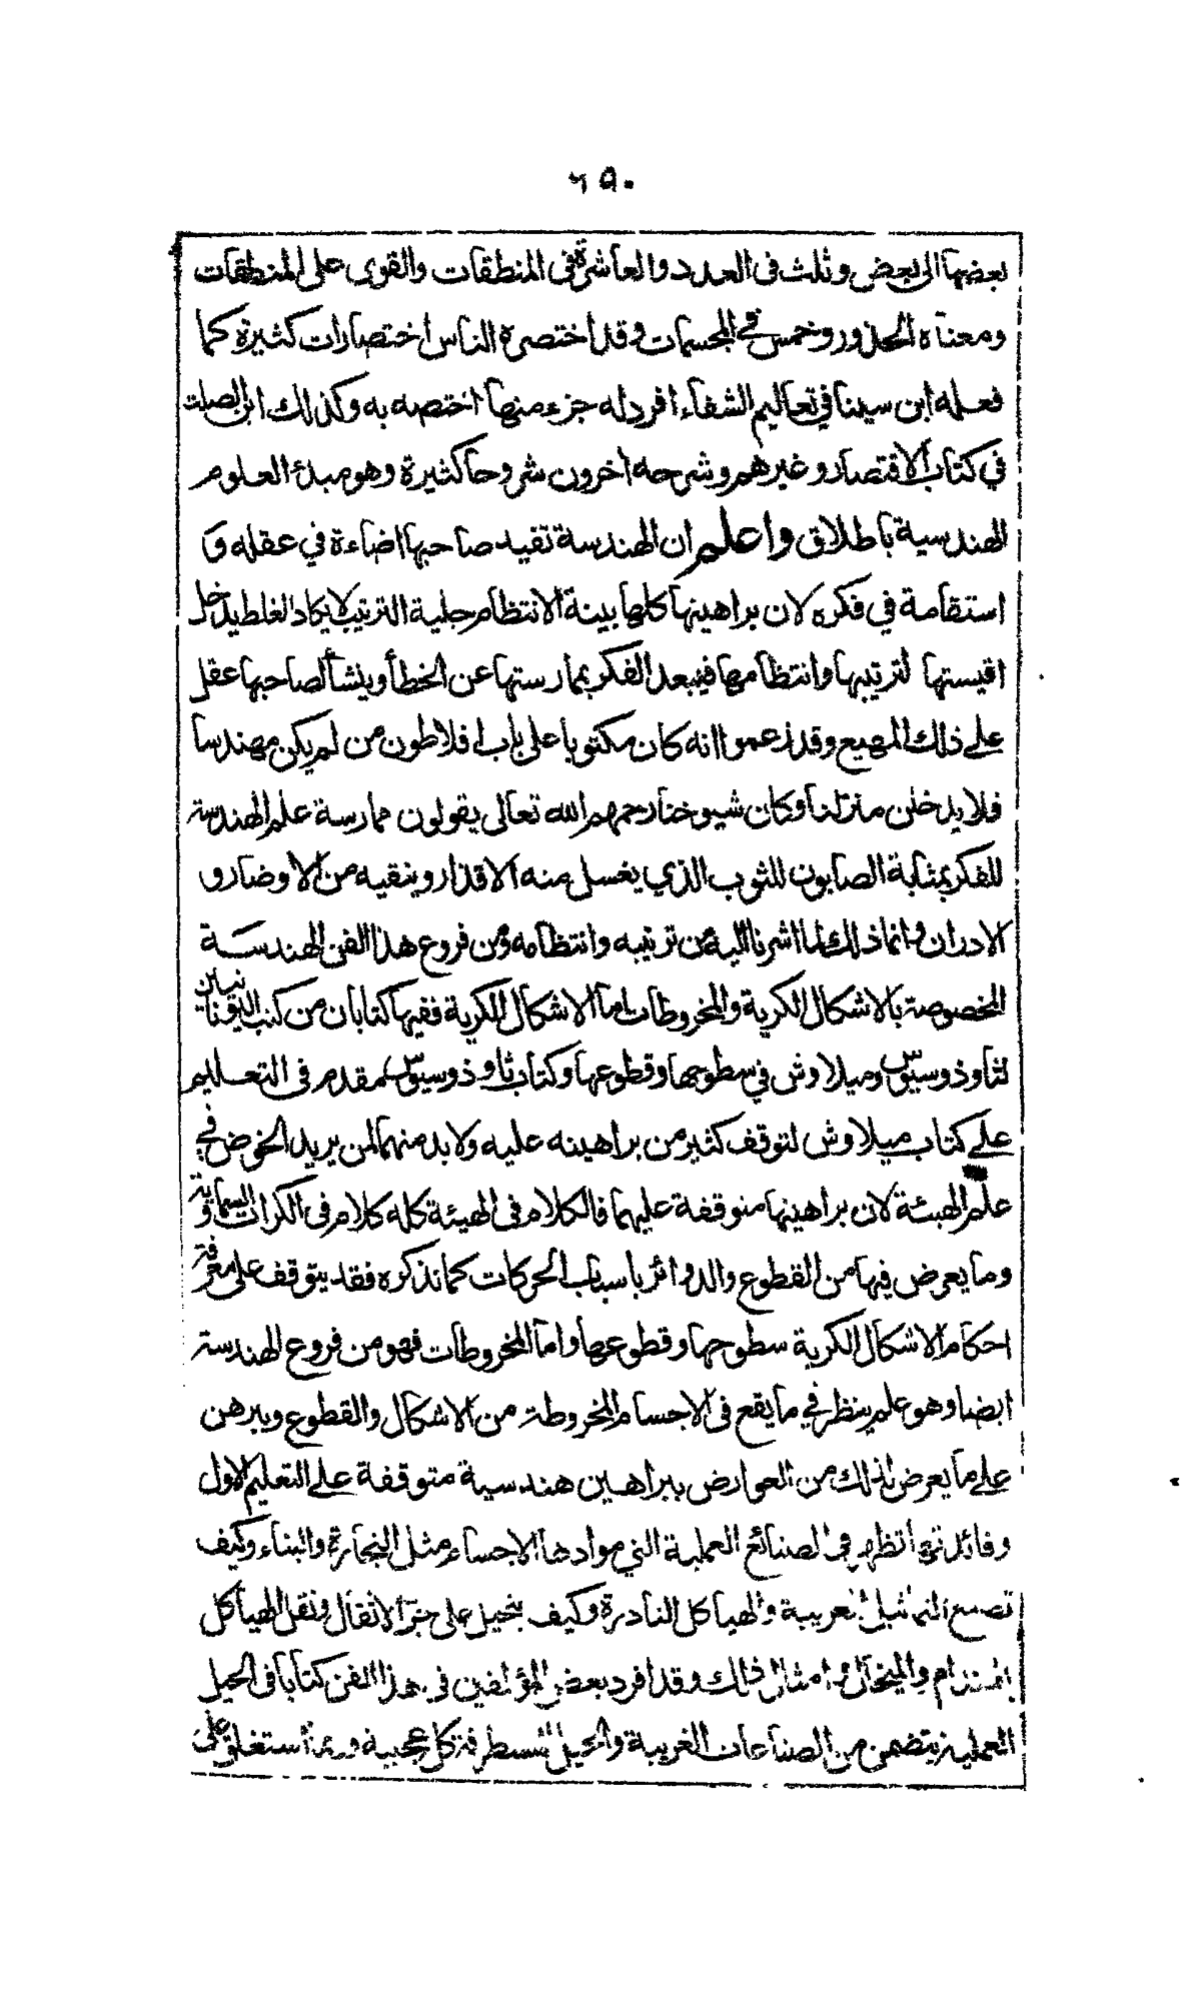 ٦٥٠
بعضها الى بعض وثلث في العدد والعاشرة في المنطقات والقوى على المنطقات
ومعناه الجذور وخمس في المجسمات وقد اختصره الناس اختصارات كثيرة كما
فعله ابن سينا في تعاليم الشفاء افرد له جزء منها اختصه به وكذلك ابن الصلت
في كتاب الاقتصار وغيرهم وشرحه اخرون شروحا كثيرة وهو مبدء العلوم
الهندسية باطلاق واعلم ان الهندسة تفيد صاحبها اضاءة في عقله و
استقامة في فكره لان براهينها كلها بينة الانتظام جلية الترتيب لا يكاد الغلط يدخل
اقيستها لترتيبها وانتظامها فيبعد الفكر بممارستها عن الخطأ وينشأ لصاحبها عقل
على ذلك المهيع وقد زعموا انه كان مكتوبا على باب افلاطون من لم يكن مهندسا
فلا يدخلن منزلنا وكان شيوخنا رحمهم الله تعالى يقولون ممارسة علم الهندسة
للفكر بمثابة الصابون للثوب الذي يغسل منه الاقذار وينقيه من الاوضار و
الادران وانما ذلك لما اشرنا اليه من ترتيبه وانتظامه ومن فروع هذا الفن الهندسة
المخصوصة بالاشكال الكرية والمخروطات اما الاشكال الكرية ففيها كتابان من كتب اليونانيين
لثاوذوسيوس وميلاوش في سطوحها وقطوعها وكتاب ثاوذوسيوس مقدم في التعليم
على كتاب ميلاوش لتوقف كثير من براهينه عليه ولا بد منهما لمن يريد الخوض في
علم الهيئة لان براهينها متوقفة عليهما فالكلام في الهيئة كله كلام في الكرات السماوية
وما يعرض فيها من القطوع والدوائر باسباب الحركات كما نذكره فقد يتوقف على معرفة
احكام الاشكال الكرية سطوحها وقطوعها واما المخروطات فهو من فروع الهندسة
ايضا وهو علم ينظر في ما يقع في الاجسام المخروطة من الاشكال والقطوع ويبرهن
على ما يعرض لذلك من العوارض ببراهين هندسية متوقفة على التعليم الاول
وفائدتها تظهر في الصنائع العملية التي موادها الاجسام مثل النجارة والبناء وكيف
تصنع التماثيل الغريبة والهياكل النادرة وكيف يتحيل على جر الاثقال ونقل الهياكل
بالهندام والميخال وامثال ذلك وقد افرد بعض المؤلفين في هذا الفن كتابا في الحيل
العملية يتضمن من الصناعات الغريبة والحيل المستطرفة كل عجيبة وربما استغلق على